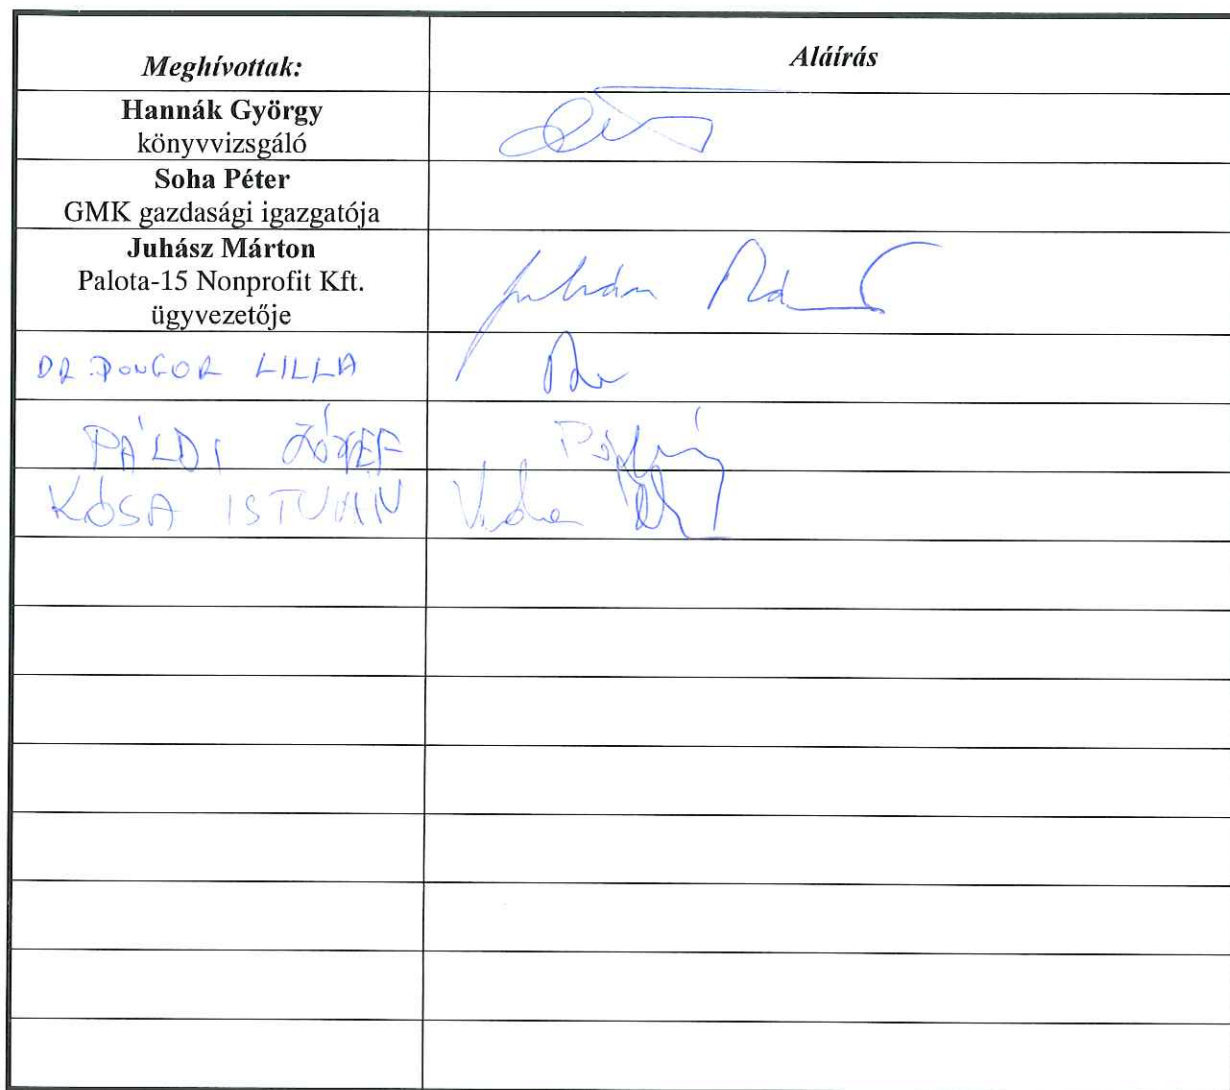 Meghívottak:
Aláírás
Hannák György
könyvvizsgáló
Soha Péter
GMK gazdasági igazgatója
Juhász Márton
Palota-15 Nonprofit Kft.
ügyvezetője
DR. DONGOR LILLA
PÁLDI JÓZSEF
KÓSA ISTVÁN